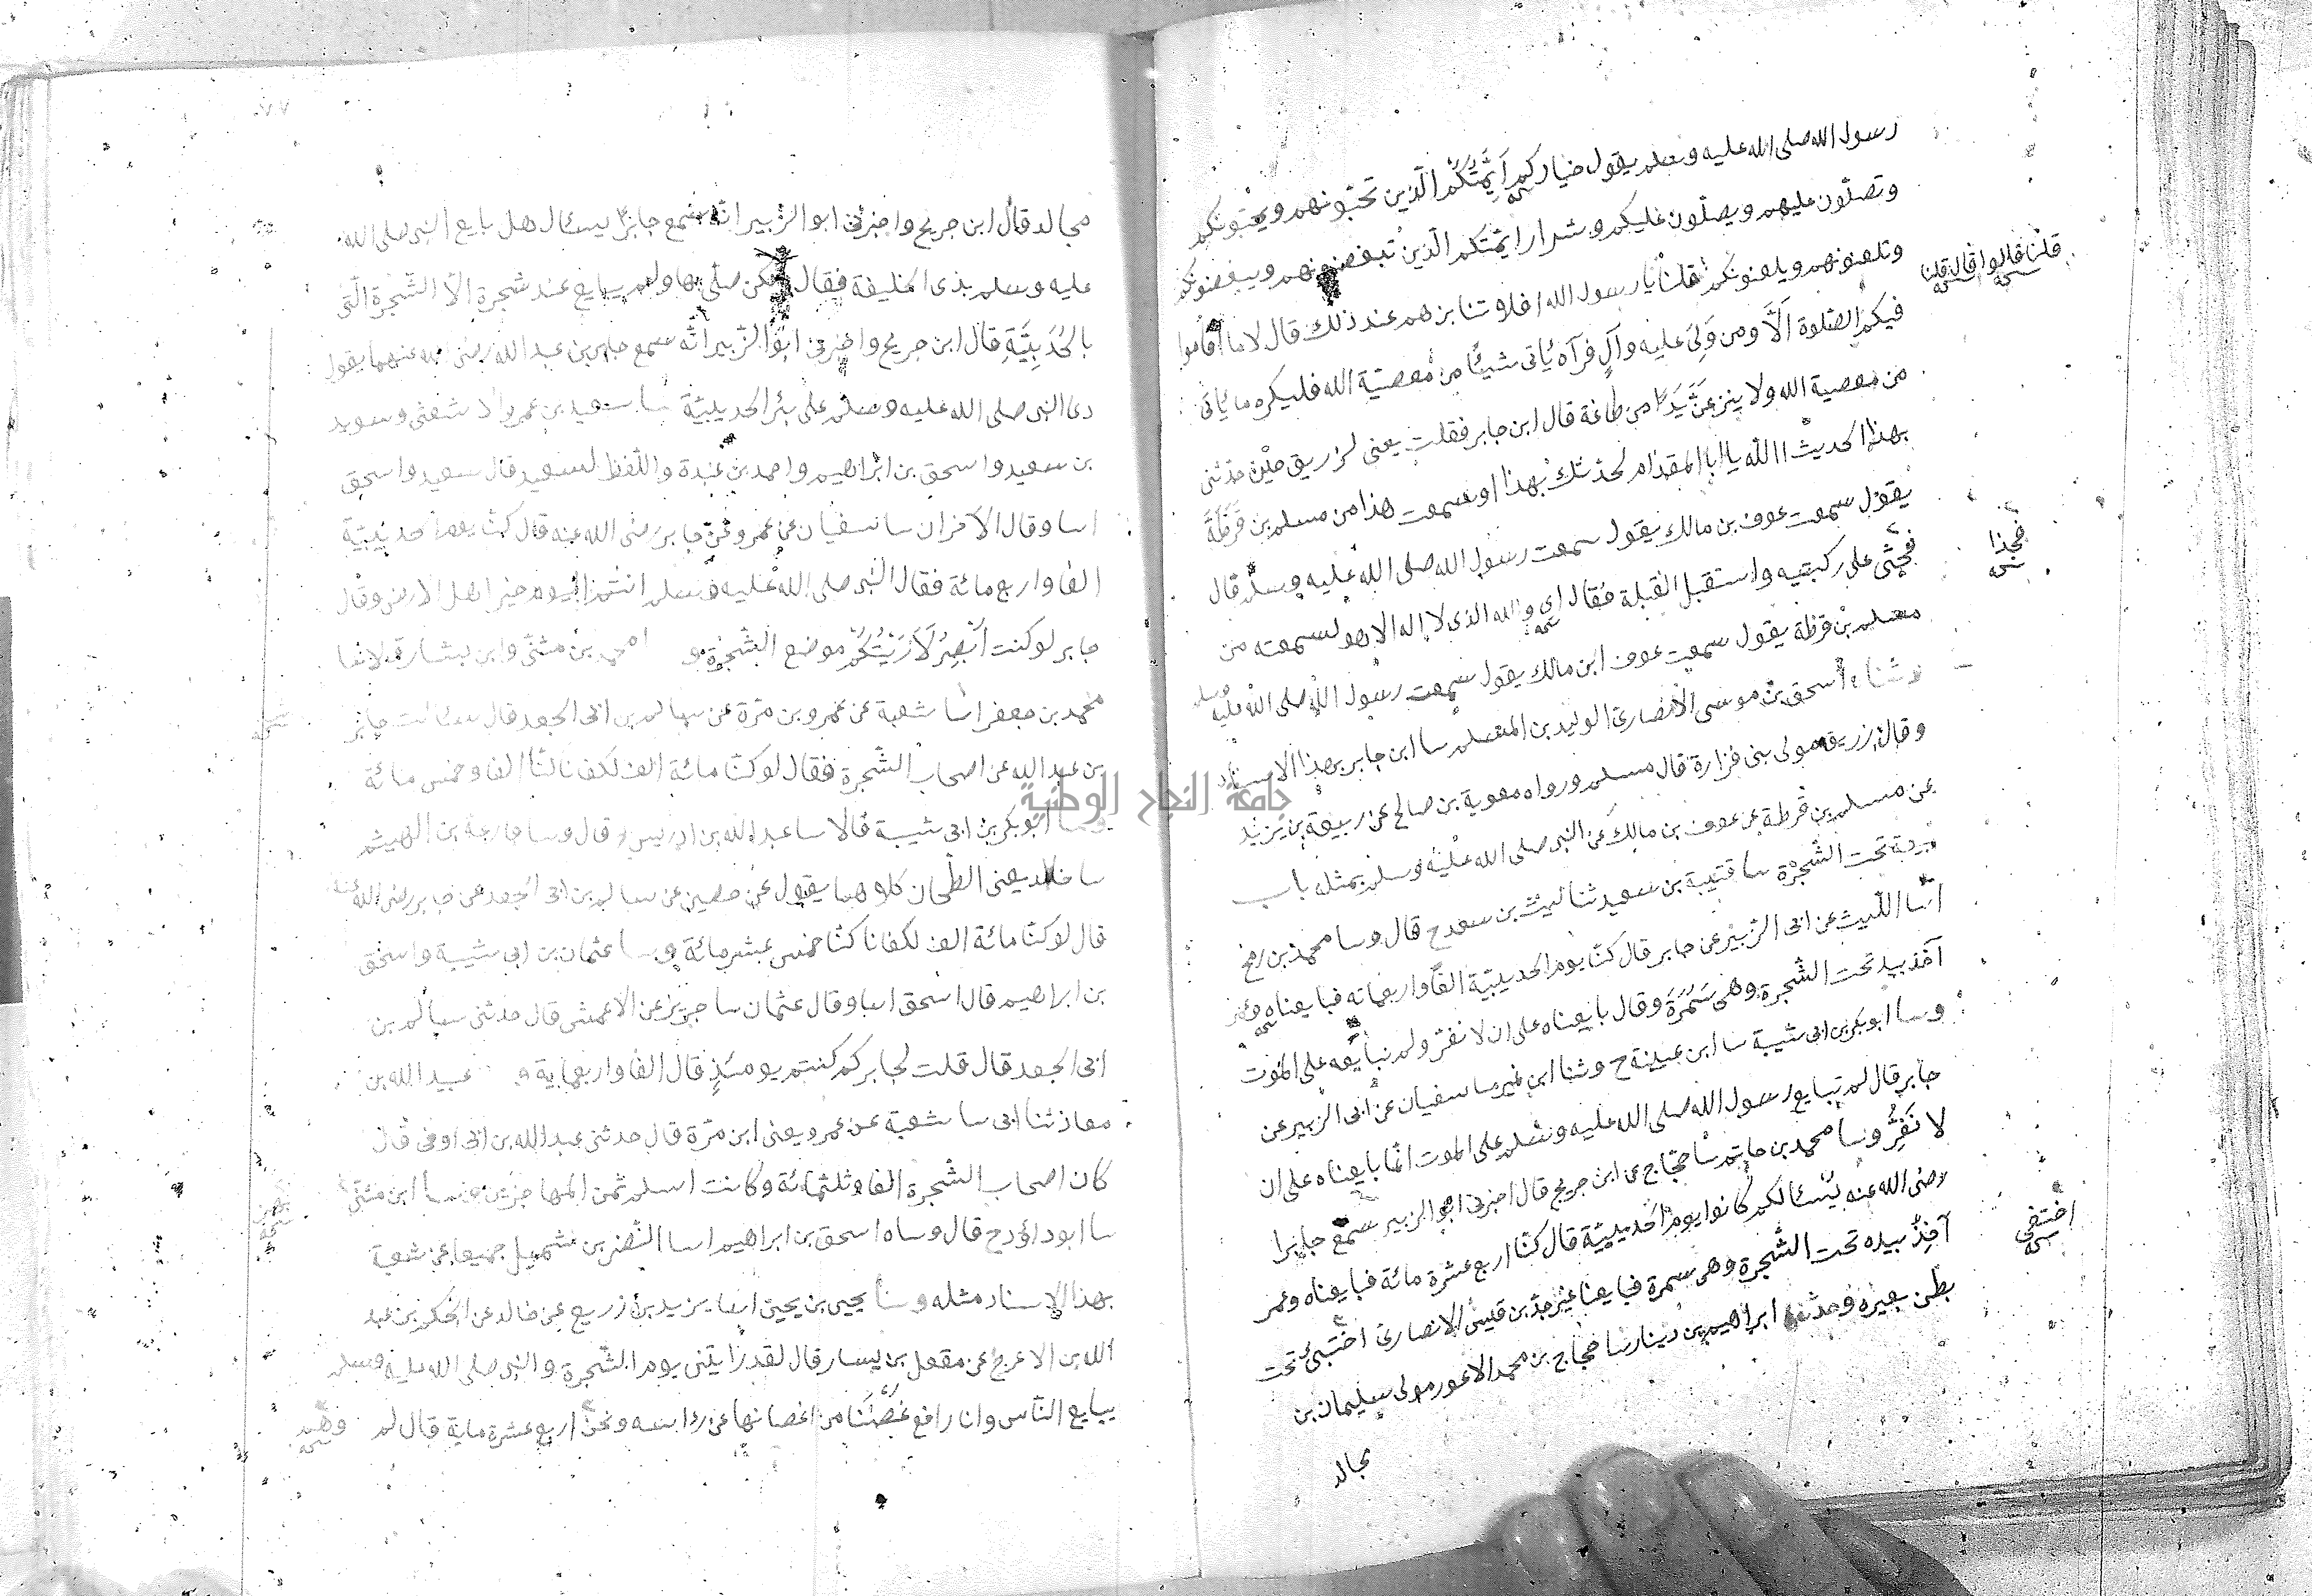 رسول الله صلى الله عليه وسلم يقول خياركم أيمتكم الذين تحبونهم ويحبونكم
وتصلون عليهم ويصلون عليكم وشرار ايمتكم الذين تبغضونهم ويبغضونكم
وتلعنونهم ويلعنونكم قلنا يا رسول الله افلا ننابزهم عند ذلك قال لا ما أقاموا
قلنا قالوا قال قلنا
فيكم الصلوة ألا ومن ولي عليه وآل فرآه يأتى شيئا من معصية الله فليكره ما يأتى
من معصية الله ولا ينزعن يدا من طاعة قال ابن جابر فقلت يعنى لزريق حين حدثنى
بهذا الحديث االله يا ابا المقدام لحدثك بهذا او سمعت هذا من مسلم بن قرظة
يقول سمعت عوف بن مالك يقول سمعت رسول الله صلى الله عليه وسلم قال
فجثى على ركبتيه واستقبل القبلة فقال اى والله الذى لا إله الا هو لسمعته من
فجذا
مسلم بن قرظة يقول سمعت عوف ابن مالك يقول سمعت رسول الله صلى الله عليه وسلم
وثنا اسحق بن موسى الأنصارى الوليد بن المسلم سا ابن جابر بهذا الاسناد
وقال زريق مولى بنى فزارة قال مسلم ورواه معوية بن صالح عن ربيعة بن يزيد
عن مسلم بن قرظة عن عوف بن مالك عن النبى صلى الله عليه وسلم بمثله باب
تحت الشجرة سا قتيبة بن سعيد ثنا ليث بن سعد ح قال وسا محمد بن رمح
انا الليث عن ابى الزبير عن جابر قال كنا يوم الحديبية الفا واربعمائه فبايعناه وعمر
آخذ بيد تحت الشجرة وهى سمرة وقال بايعناه على ان لا نفر ولم نبايعه على الموت
وسا ابو بكر بن ابى شيبة سا ابن عيينة ح وثنا ابن نمير سا سفيان عن أبى الزبير عن
جابر قال لم نبايع رسول الله صلى الله عليه وسلم على الموت انما بايعناه على ان
لا نفر وسا محمد بن حاتم سا حجاج عن ابن جريج قال اخبرنى ابو الزبير سمع جابرا
رضى الله عنه يسئالكم كانوا يوم الحديبية قال كنا اربع عشرة مائة فبايعناه وعمر
آخذ بيده تحت الشجرة وهى سمرة فبايعنا غير جد بن قيس الانصارى اختبى تحت
اختفى
بطن بعيره وحدثنى ابراهيم بن دينار سا حجاج بن محمد الاعور مولى سليمان بن
مجالد
مجالد قال ابن جريج واخبرنى ابو الزبير انه سمع جابرا يسئال هل بايع النبى صلى الله
عليه وسلم بذى الحليفة فقال لكن صلى بها ولم يبايع عند شجرة الا الشجرة التى
بالحديبية قال ابن جريج واخبرنى ابو الزبير انه سمع جابر بن عبد الله رضى الله عنهما يقول
دعا النبى صلى الله عليه وسلم على بئر الحديبية سا سعيد بن عمرو الاشعثى وسويد
بن سعيد واسحق بن ابراهيم واحمد بن عبدة واللفظ لسعيد قال سعيد واسحق
اسا وقال الاخران سا سفيان عن عمرو عن جابر رضى الله عنه قال كنا يوم حديبية
الفا واربع مائة فقال النبى صلى الله عليه وسلم انتم اليوم خير اهل الارض وقال
جابر لو كنت أبصر لأريتكم موضع الشجرة و محمد بن مثنى وابن بشار قالا ثنا
محمد بن جعفر اسا شعبة عن عمرو بن مرة عن سالم بن ابى الجعد قال سئالت جابر
بن عبد الله عن اصحاب الشجرة فقال لو كنا مائة الف لكفانا كنا الفا وخمس مائة
وسا ابو بكر بن ابى شيبة قالا سا عبد الله بن ادريس ح قال وسا رفاعة بن الهيثم
سا خالد يعنى الطحان كلاهما يقول عن حصين عن سالم بن ابى الجعد عن جابر رضى الله عنه
قال لو كنا مائة الف لكفانا كنا خمس عشر مائة وسا عثمان بن ابى شيبة واسحق
بن ابراهيم قال اسحق اسا وقال عثمان سا جرير عن الاعمش قال حدثنى سالم بن
ابى الجعد قال قلت لجابر كم كنتم يومئذ قال الفا واربعماية و عبيد الله بن
معاذ ثنا ابى سا شعبة عن عمرو يعنى ابن مرة قال حدثنى عبد الله بن ابى اوفى قال
كان اصحاب الشجرة الفا وثلثمائة وكانت اسلم ثمن المهاجرين وسا ابن مثنى
سا ابو داؤد ح قال وساه اسحق بن ابراهيم اسا النضر بن شميل جميعا عن شعبة
بهذا الاسناد مثله وسا يحيى بن يحيى اسا يزيد بن زريع عن خالد عن الحكم بن عبد
الله بن الاعرج عن معقل بن يسار قال لقد رايتنى يوم الشجرة والنبى صلى الله عليه وسلم
يبايع الناس وانا رافع غصنا من اغصانها عن راسه ونحن اربع عشرة ماية قال لم
جامعة النجاح الوطنية